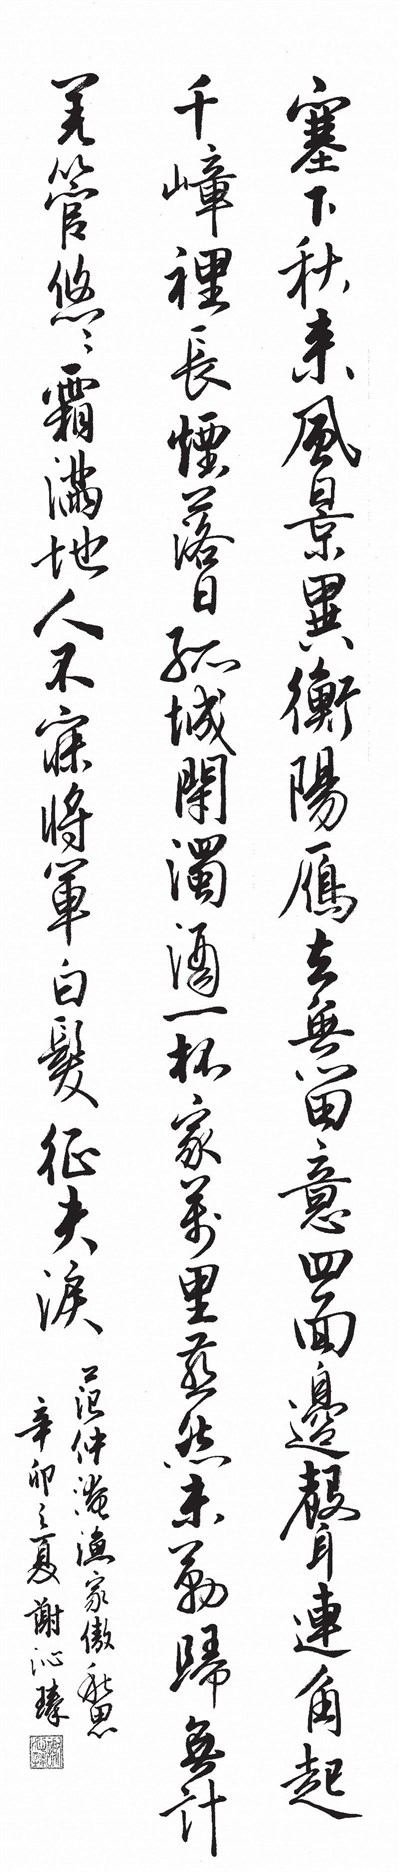 塞下秋來風景異衡陽雁去無留意四面邊聲連角起
千嶂裡長煙落日孤城閉濁酒一杯家萬里燕然未勒歸無計
羌管悠〻霜滿地人不寐將軍白髮征夫淚
范仲淹漁家傲秋思
辛卯之夏謝沁